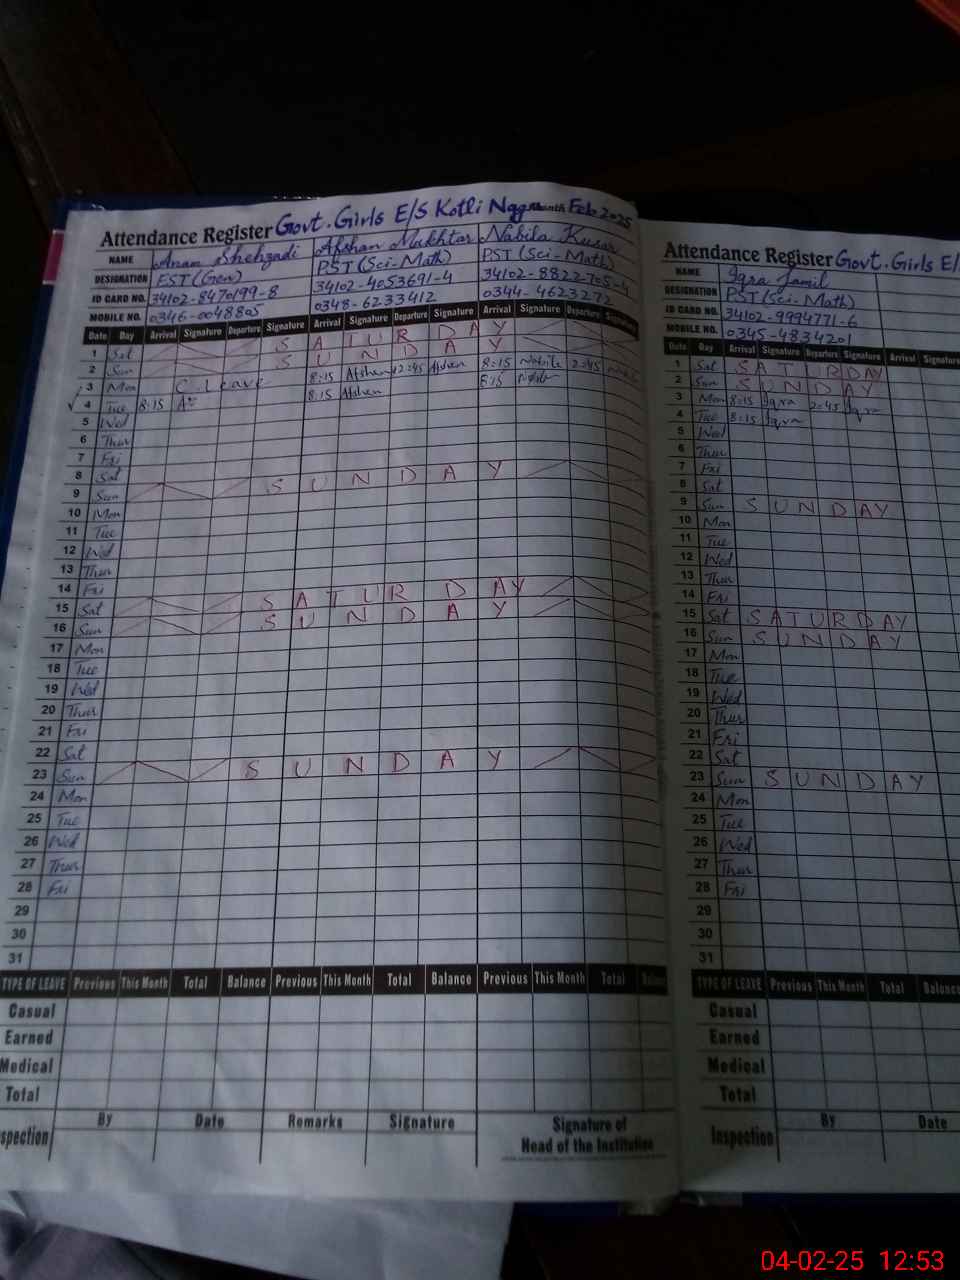 Attendance Register Govt. Girls E/S Kotli Month Feb 2025
NAME Anam Shehzadi Afshan Mukhtar Nabila Kusar
DESIGNATION EST (Gen) PST (Sci-Math) PST (Sci-Math)
ID CARD NO. 34102-8470199-8 34102-4053691-4 34102-8822705-4
MOBILE NO. 0346-0048805 0348-6233412 0344-4623272
Date Day Arrival Signature Departure Signature Arrival Signature Departure Signature Arrival Signature Departure Signature
1 Sat SATURDAY
2 Sun SUNDAY
3 Mon C. Leave 8:15 Afshan 2:45 Afshan 8:15 Nabila 2:45
4 Tue 8:15 8:15 Afshan 8:15
5 Wed
6 Thur
7 Fri
8 Sat
9 Sun SUNDAY
10 Mon
11 Tue
12 Wed
13 Thur
14 Fri
15 Sat SATURDAY
16 Sun SUNDAY
17 Mon
18 Tue
19 Wed
20 Thur
21 Fri
22 Sat
23 Sun SUNDAY
24 Mon
25 Tue
26 Wed
27 Thur
28 Fri
29
30
31
TYPE OF LEAVE Previous This Month Total Balance Previous This Month Total Balance Previous This Month Total
Casual
Earned
Medical
Total
By Date Remarks Signature Signature of
Head of the Institution
spection
Attendance Register Govt. Girls E/
NAME Iqra Jamil
DESIGNATION PST (Sci-Math)
ID CARD NO. 34102-9994771-6
MOBILE NO. 0345-4834201
Date Day Arrival Signature Departure Signature Arrival Signature
1 Sat SATURDAY
2 Sun SUNDAY
3 Mon 8:15 Iqra 2:45 Iqra
4 Tue 8:15 Iqra
5 Wed
6 Thur
7 Fri
8 Sat
9 Sun SUNDAY
10 Mon
11 Tue
12 Wed
13 Thur
14 Fri
15 Sat SATURDAY
16 Sun SUNDAY
17 Mon
18 Tue
19 Wed
20 Thur
21 Fri
22 Sat
23 Sun SUNDAY
24 Mon
25 Tue
26 Wed
27 Thur
28 Fri
29
30
31
TYPE OF LEAVE Previous This Month Total Balance
Casual
Earned
Medical
Total
Inspection By Date
04-02-25 12:53